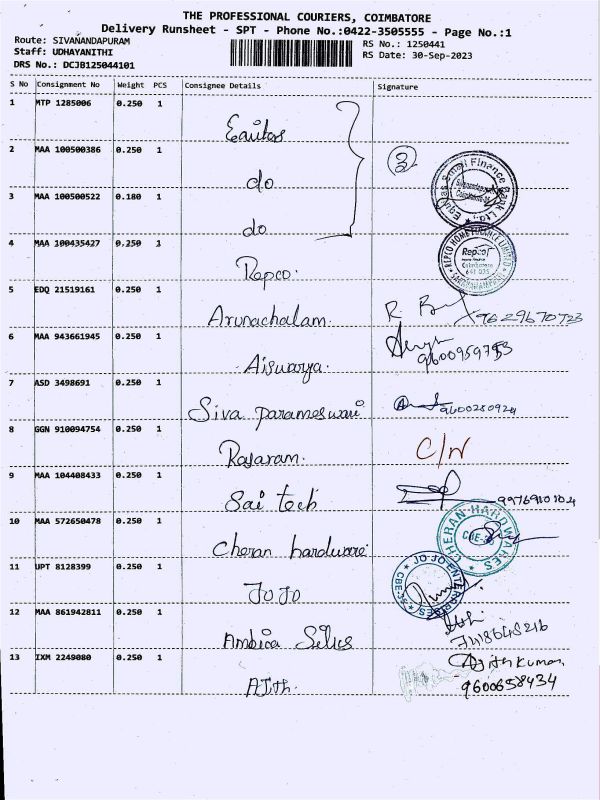 THE PROFESSIONAL COURIERS, COIMBATORE
Delivery Runsheet - SPT - Phone No.:0422-3505555 - Page No.:1
Route: SIVANANDAPURAM
Staff: UDHAYANITHI
DRS No.: DCJB125044101
RS No.: 1250441
RS Date: 30-Sep-2023
S No Consignment No Weight PCS Consignee Details Signature
1 MTP 1285006 0.250 1
Equitas
2 MAA 100500386 0.250 1
do
3
3 MAA 100500522 0.180 1
do
4 MAA 100435427 0.250 1
Repco.
REPCO HOME FINANCE LIMITED
Repco
Coimbatore
641 035
5 EDQ 21519161 0.250 1
Arunachalam.
9629670723
6 MAA 943661945 0.250 1
Aiswarya.
9600959753
7 ASD 3498691 0.250 1
Siva parameswari
9600280924
8 GGN 910094754 0.250 1
Rajaram.
C/N
9 MAA 104408433 0.250 1
Sai tech
9976910104
10 MAA 572650478 0.250 1
Cheran hardware
CHERAN HARDWARES
CBE-35
11 UPT 8128399 0.250 1
JOJO
JO JO ENTERPRISES
CBE-35
12 MAA 861942811 0.250 1
Ambica Silks
13 IXM 2249080 0.250 1
Ajith.
Ajithkumar
9600658434